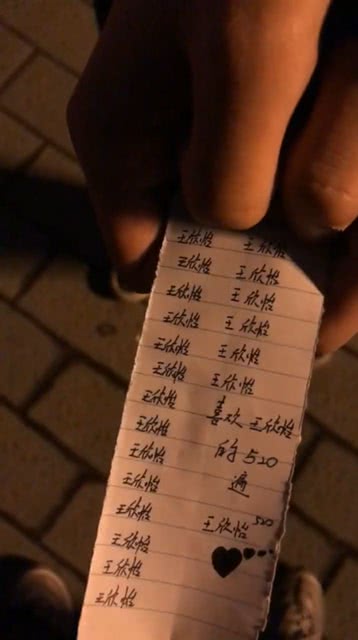 王欣怡 王欣怡
王欣怡 王欣怡
王欣怡 王欣怡
王欣怡 王欣怡
王欣怡 王欣怡
王欣怡 王欣怡
王欣怡 喜欢 王欣怡
王欣怡 的 520
王欣怡 遍
王欣怡
王欣怡 王欣怡 520
王欣怡
王欣怡
王欣怡